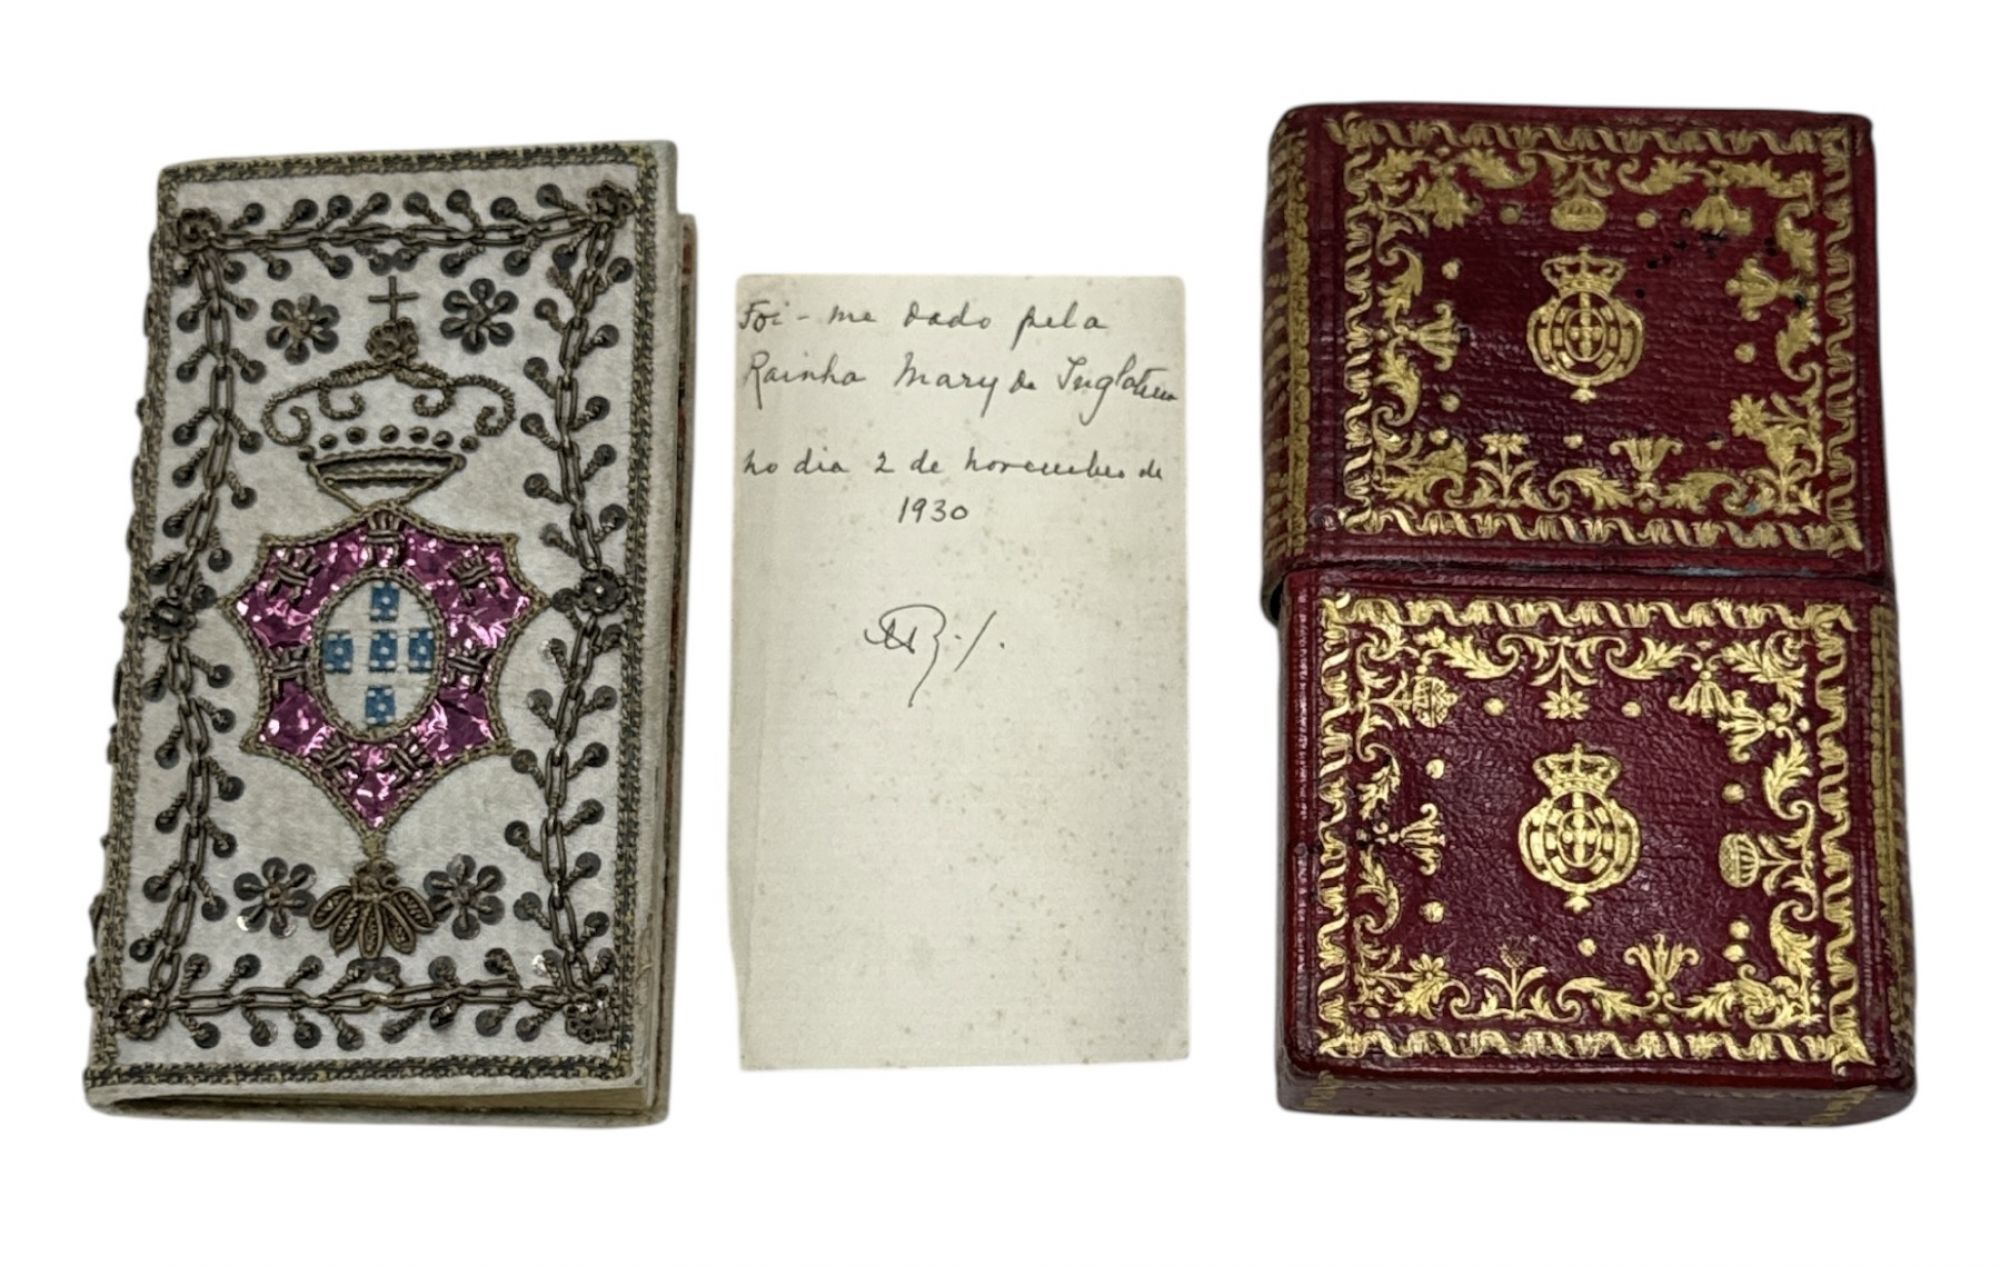 Foi-me dado pela
Rainha Mary de Inglaterra
no dia 2 de novembro de
1930